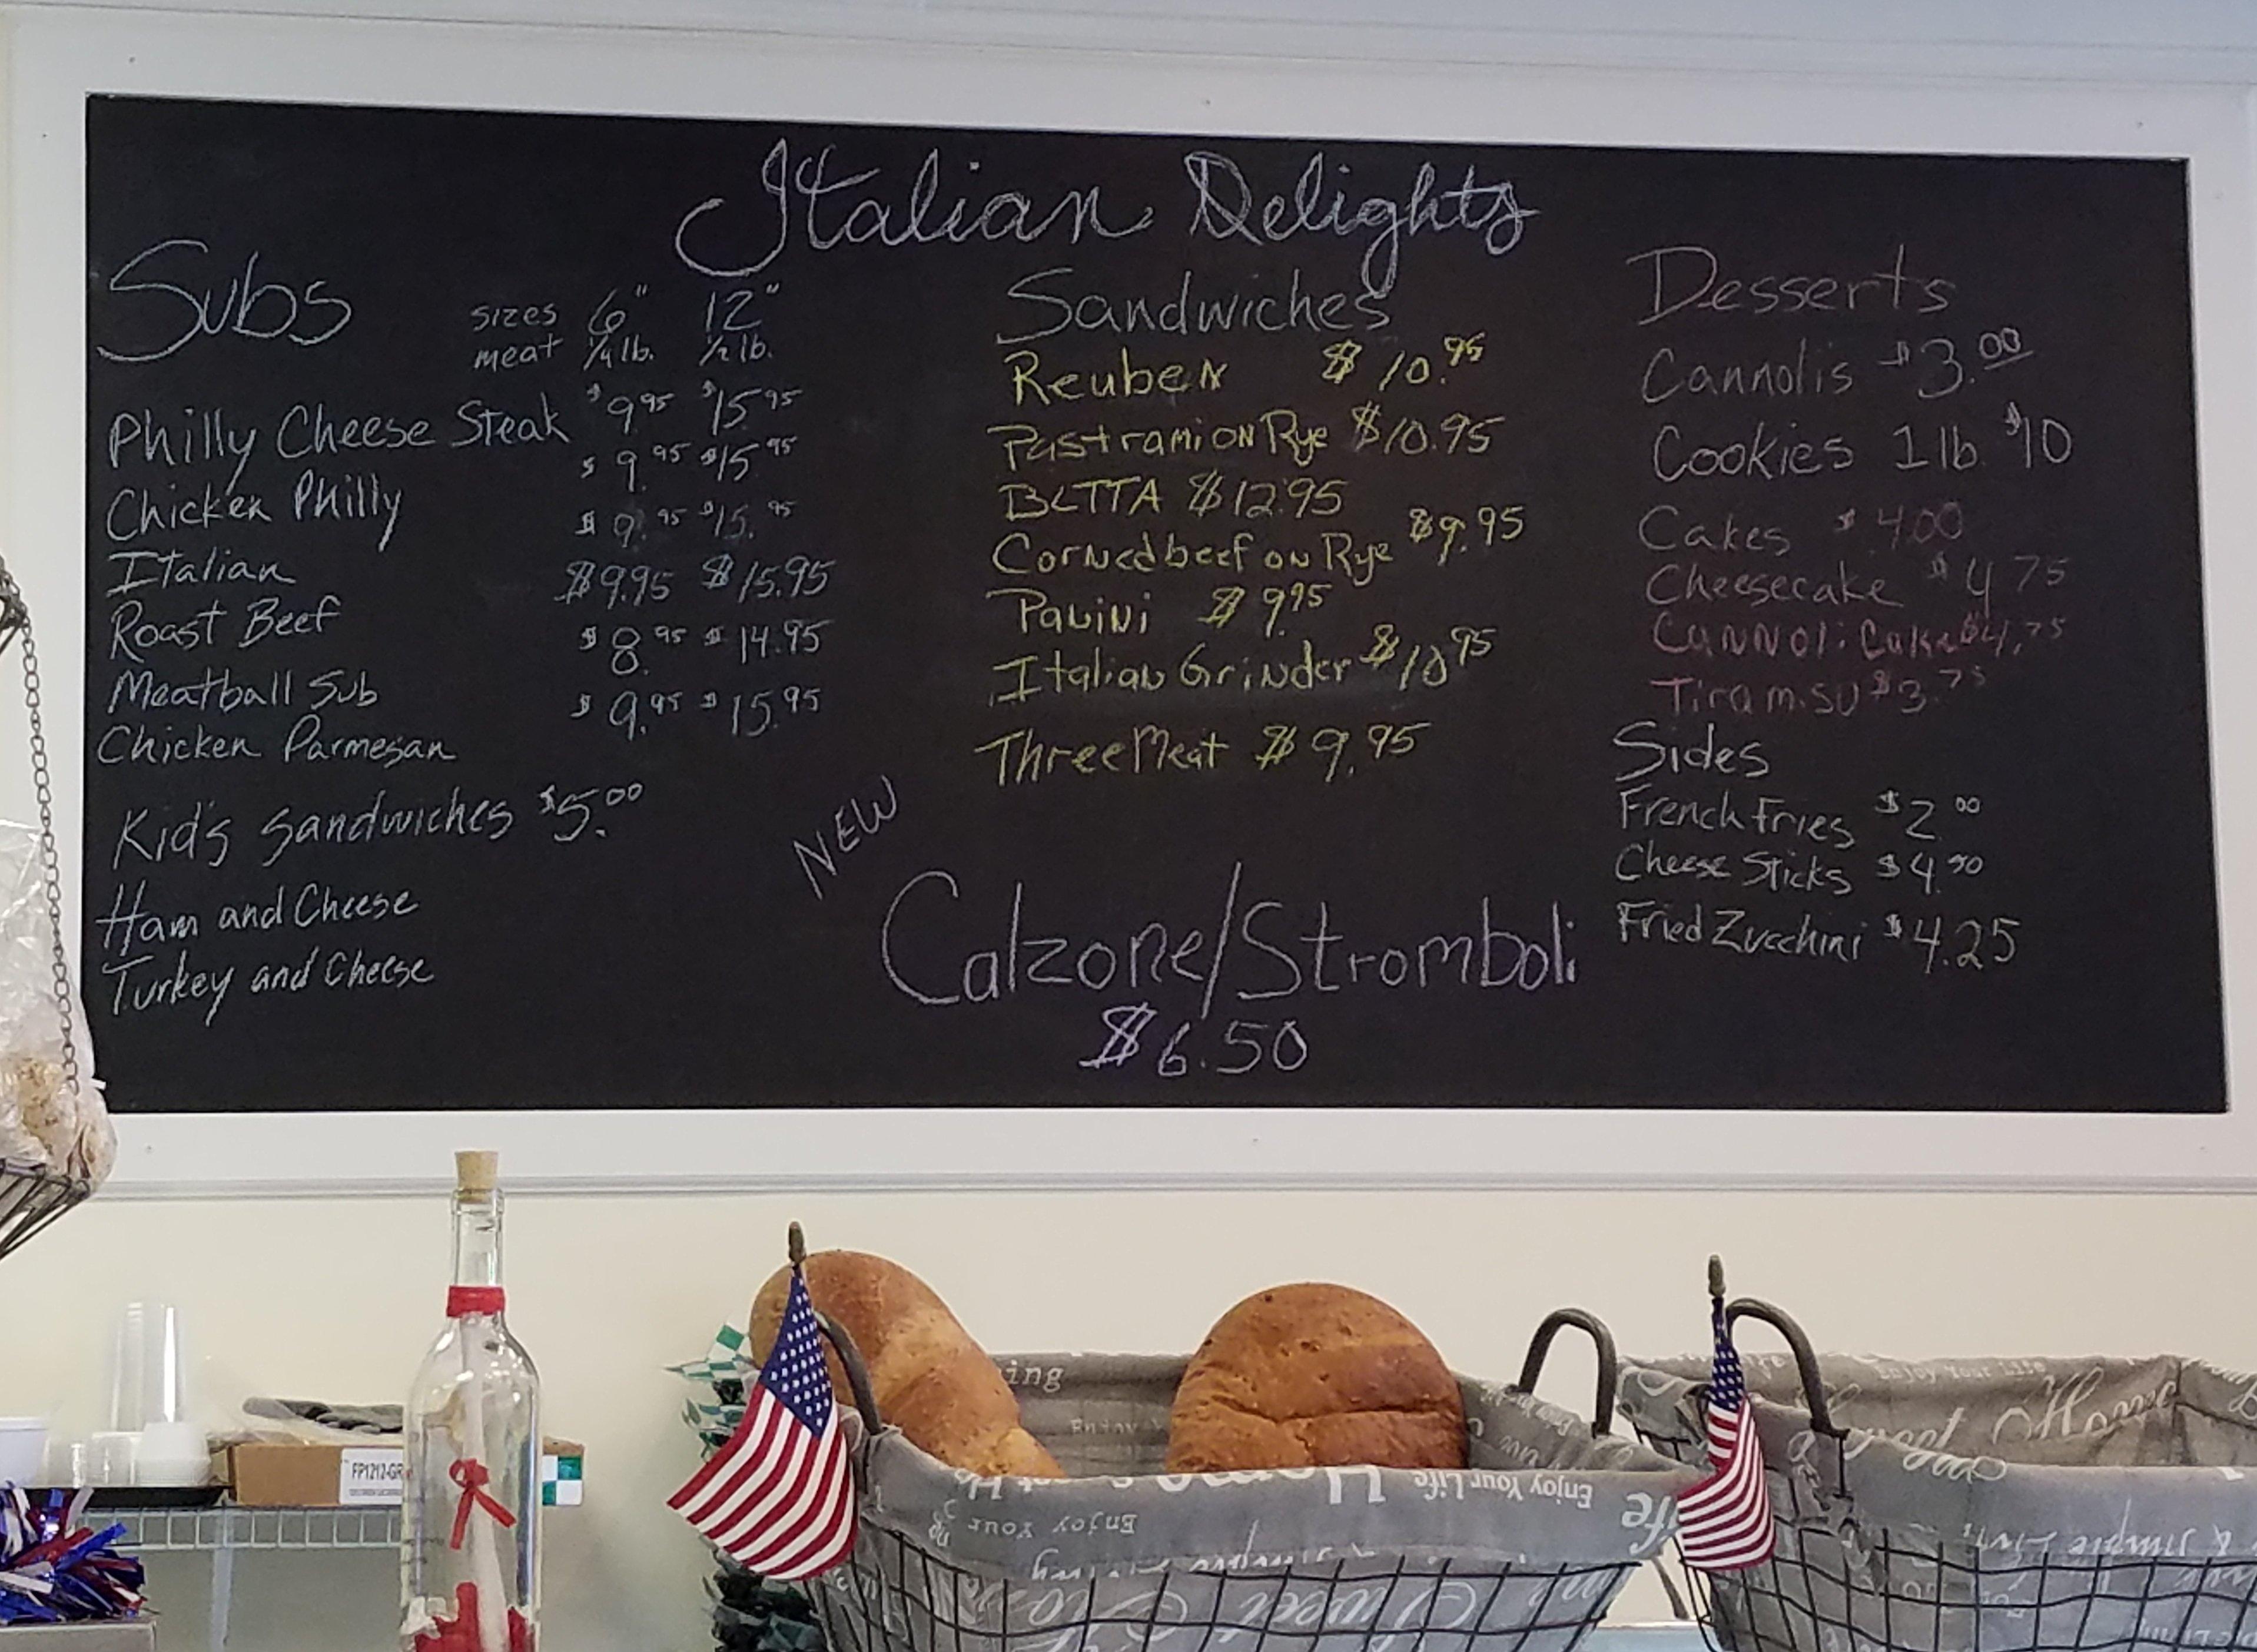 Italian Delights
Subs
sizes 6" 12"
meat 1/4 lb. 1/2 lb.
Philly Cheese Steak $9.95 $15.95
Chicken Philly $9.95 $15.95
Italian $9.95 $15.95
Roast Beef $9.95 $15.95
Meatball Sub $8.95 $14.95
Chicken Parmesan $9.95 $15.95
Kid's Sandwiches $5.00
Ham and Cheese
Turkey and Cheese
Sandwiches
Reuben $10.95
Pastrami on Rye $10.95
BLTTA $12.95
Corned beef on Rye $9.95
Panini $9.95
Italian Grinder $10.95
Three Meat $9.95
NEW
Calzone/Stromboli
$6.50
Desserts
Cannolis $3.00
Cookies 1 lb. $10
Cakes $4.00
Cheesecake $4.75
Cannoli Cake $4.75
Tiramisu $3.75
Sides
French Fries $2.00
Cheese Sticks $4.50
Fried Zucchini $4.25
FP1212-GR
ing
Enjoy
Enjoy Your Life
Enjoy Your
Enjoy Your Life
Home
Sweet